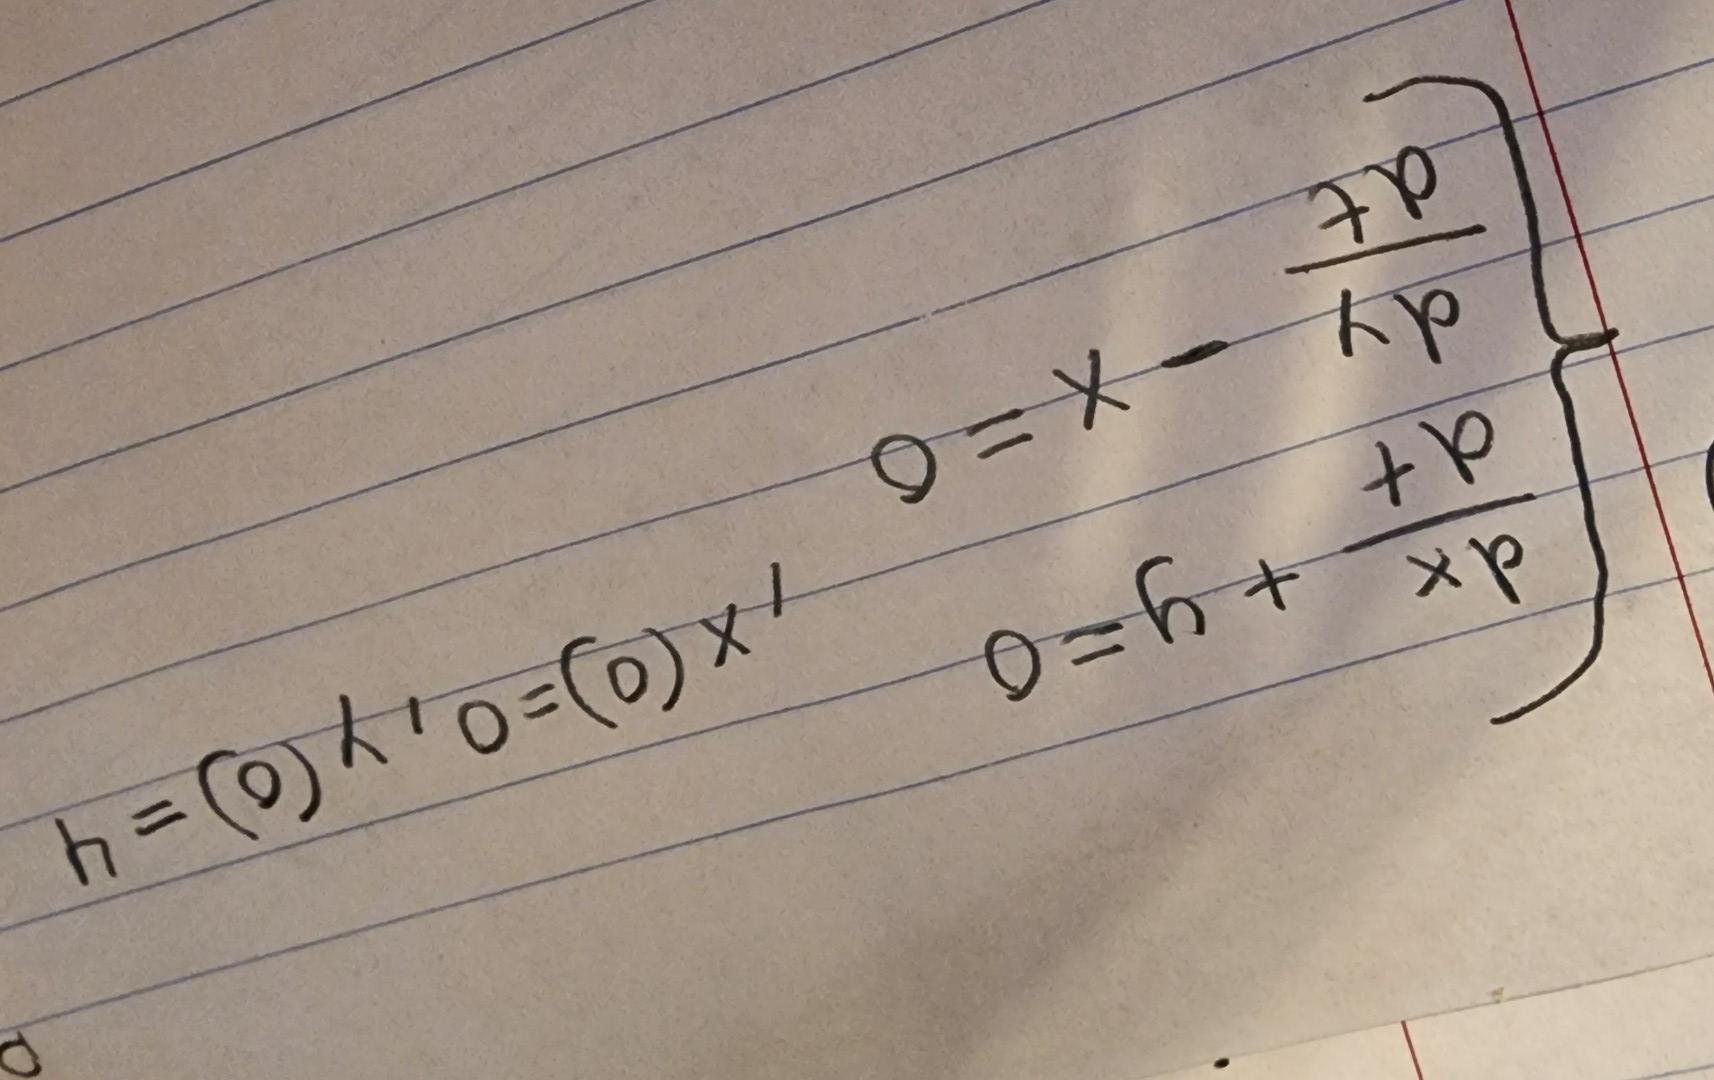 dx/dt + y = 0
dy/dt - x = 0 , x(0)=0, y(0)=4